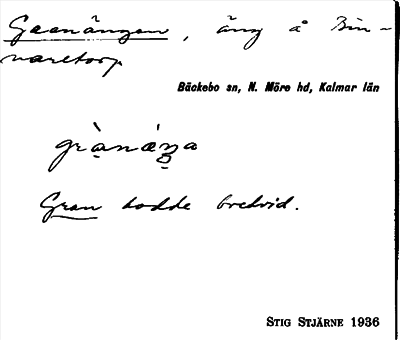 Granängen, äng å Bin-
naretorp
Bäckebo sn, N. Möre hd, Kalmar län
grànáŋa
Gran bodde bredvid.
STIG STJÄRNE 1936